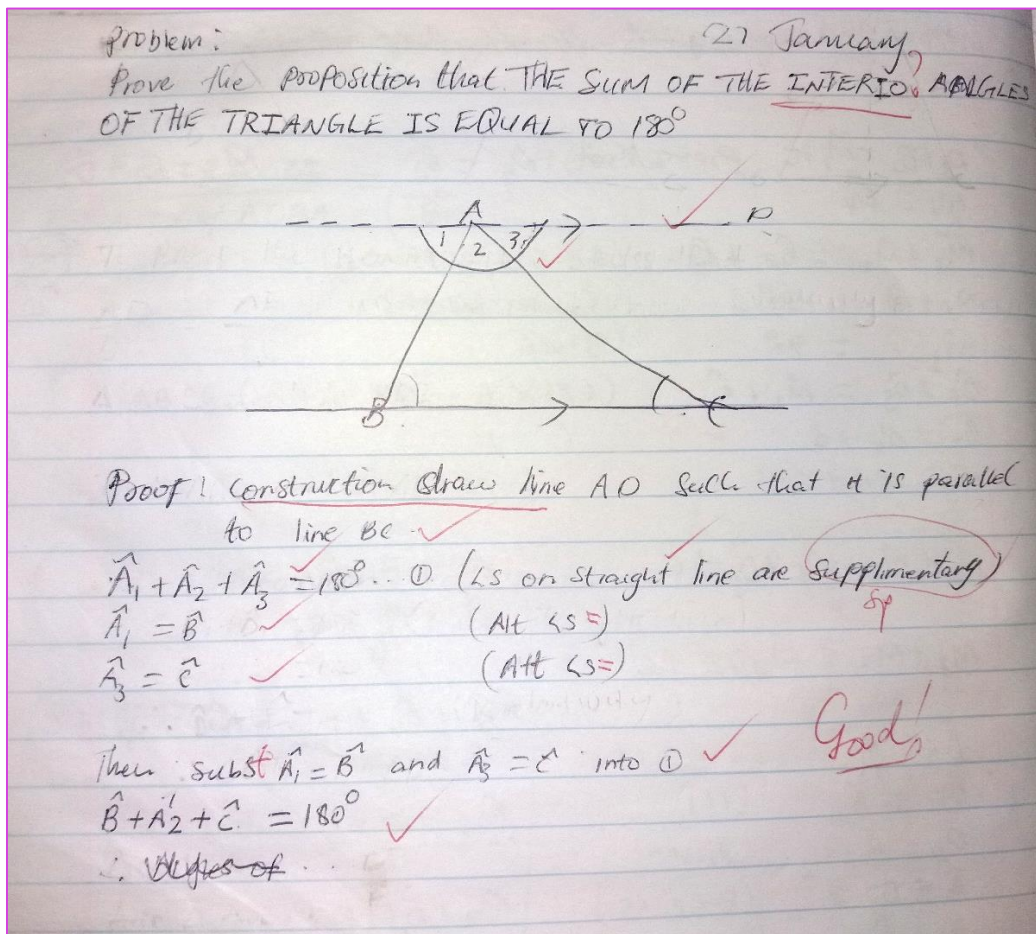 Problem: 27 January
Prove the proposition that THE SUM OF THE INTERIO ANGLES
OF THE TRIANGLE IS EQUAL TO 180°
A D
1 2 3
B C
Proof: construction draw line AD such that it is parallel
to line BC
Â₁ + Â₂ + Â₃ = 180° .. ① (<s on straight line are supplimentary)
Sp
Â₁ = B̂ (Alt <s =)
Â₃ = Ĉ (Alt <s =)
Good!
Then subst Â₁ = B̂ and Â₃ = Ĉ into ①
B̂ + Â2 + Ĉ = 180°
∴